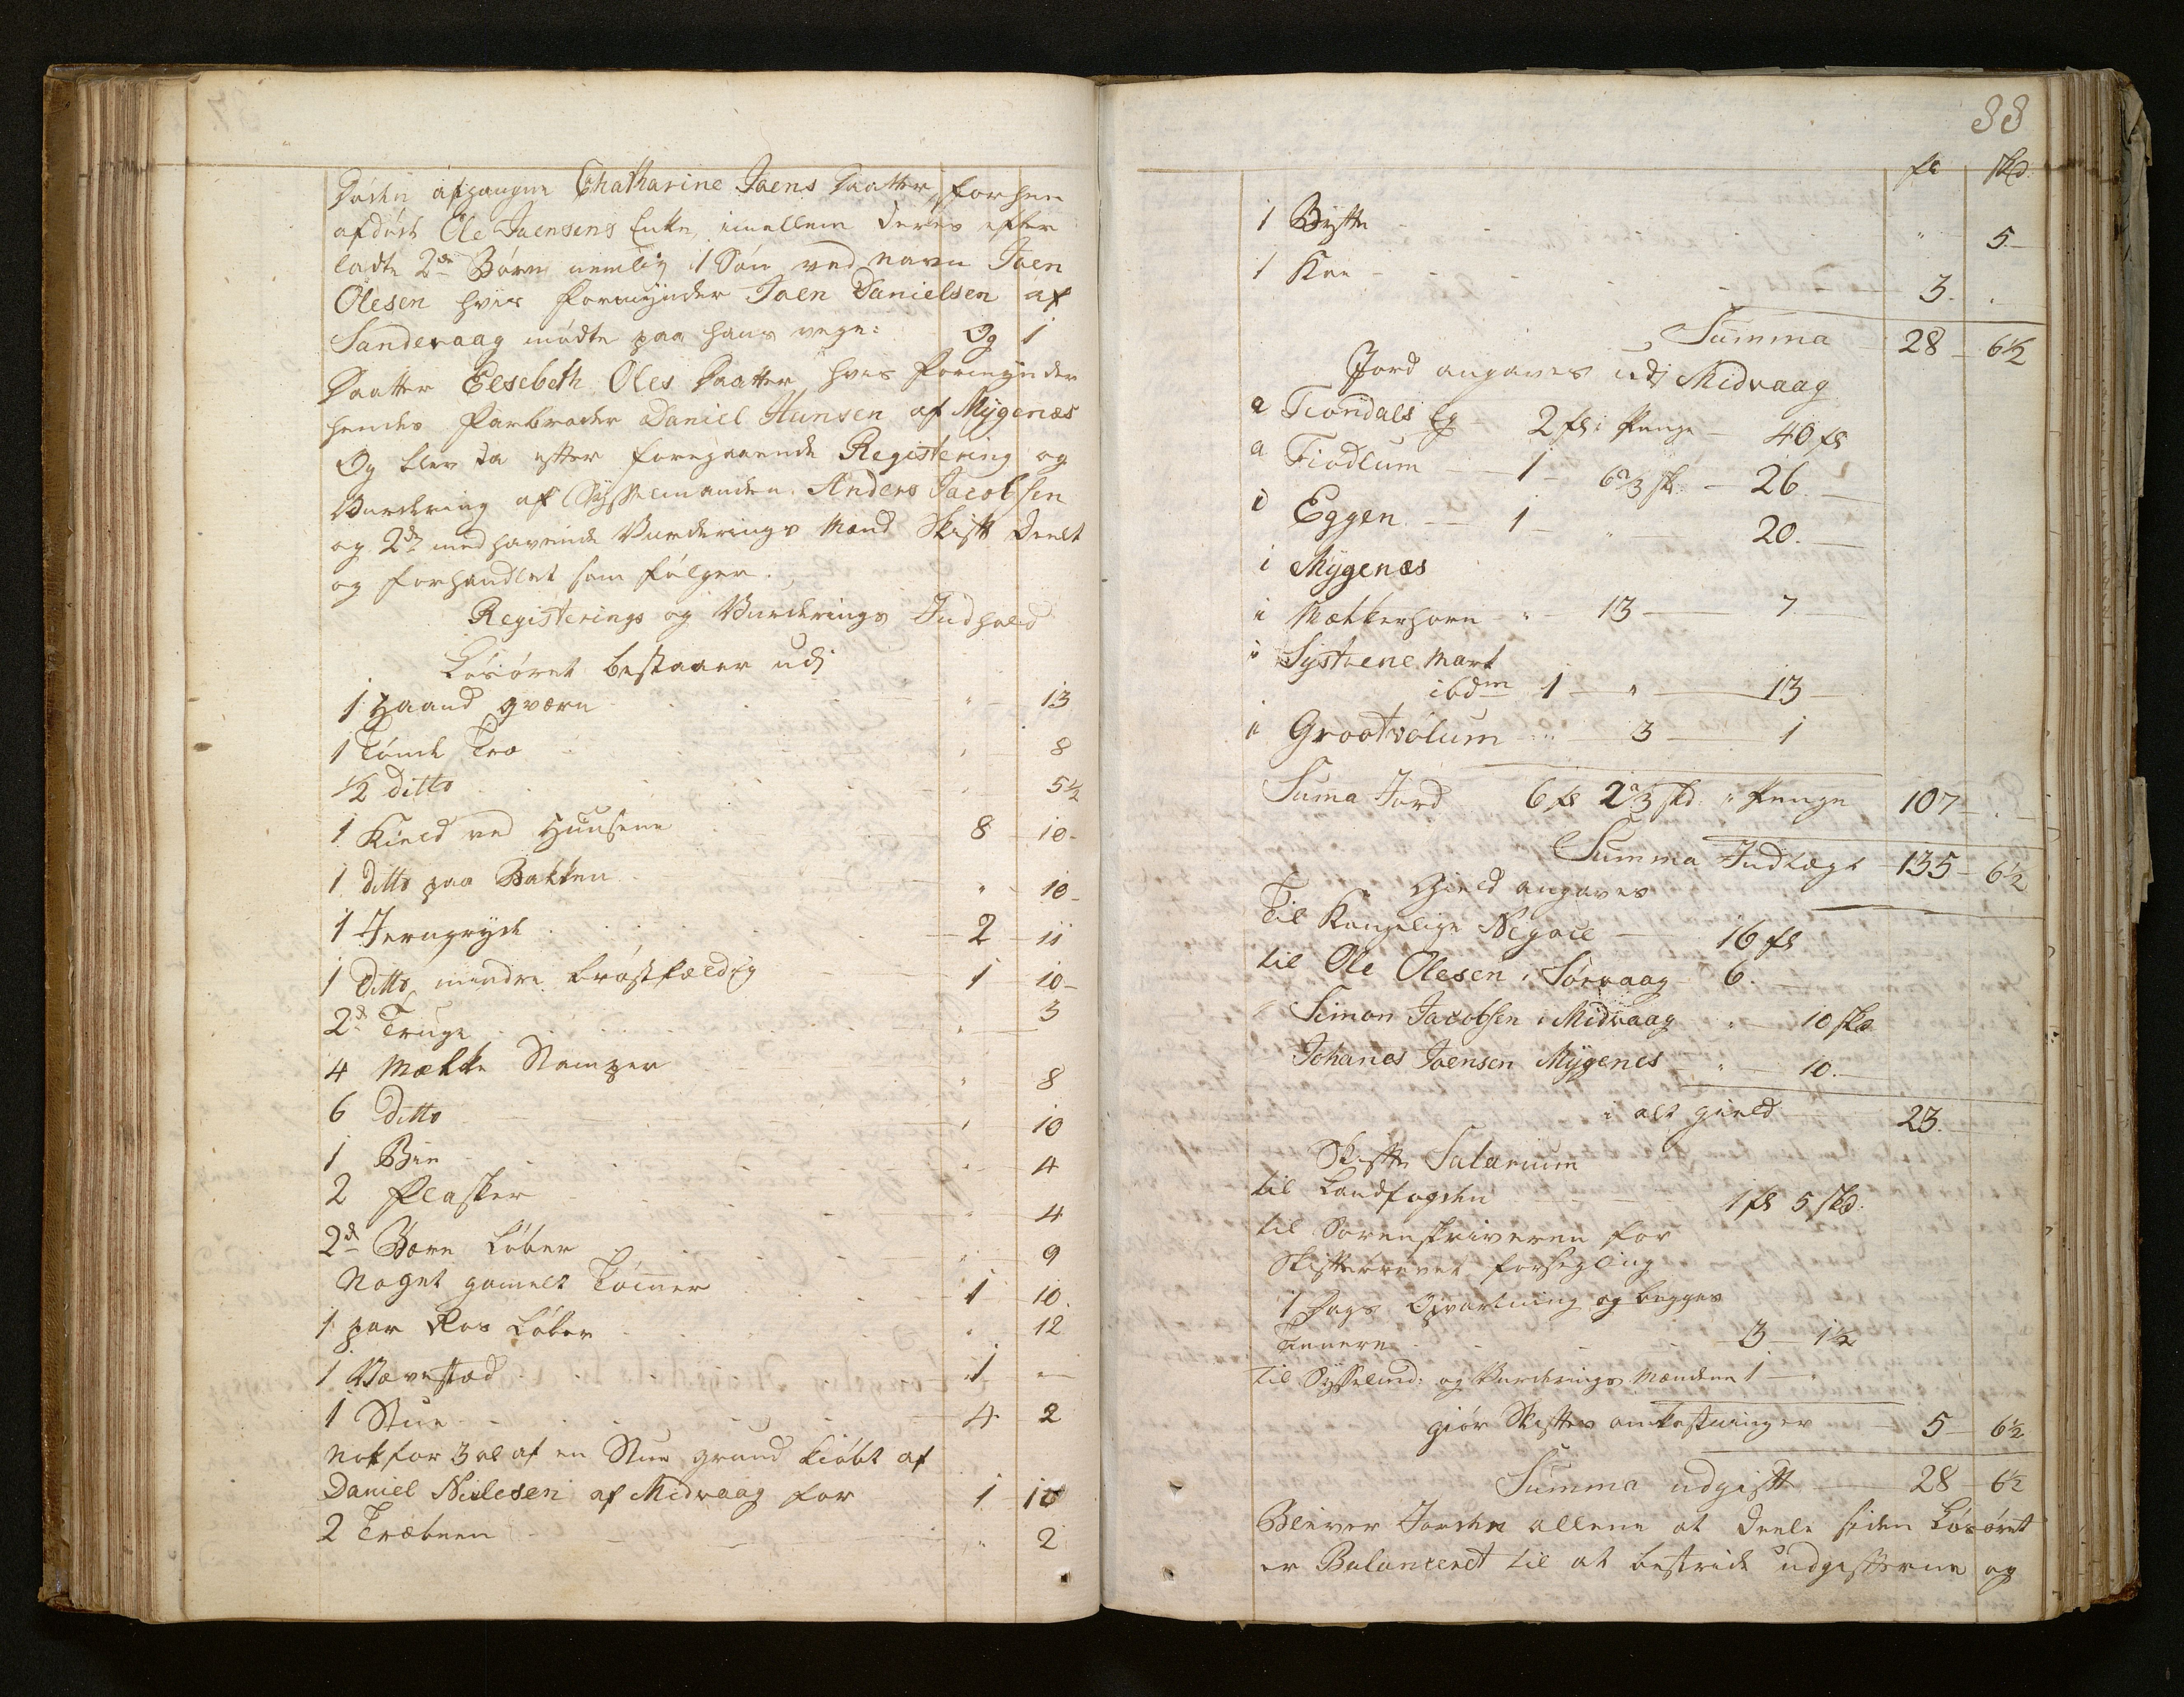 Døden afgangne Chatharine Joens Daatter, forhen
afdøde Ole Joensens Enke, imellem deres efter
ladte 2de Børn nemlig 1 Søn ved navn Joen
Olesen hvis Formynder Joen Danielsen af
Sandevaag mødte paa hans vegne: Og 1
Daatter Elsebeth Oles Daatter hvis Formynder
hendes Farbroder Daniel Hansen af Mygenæs
Og blev da efter foregaaende Registering og
Vurdering af Sysselmanden Anders Jacobsen
og 2de medhavende Vurderings Mænd Skift deelt
og forhandlet som følger.
Registerings og Vurderings Indhold
Løsøret bestaaer udj
1 Haand qværn " 13
1 Tønde Træ " 8
1/2 ditto " 5 1/2
1 Kield ved Huusene 8 10
1 ditto paa Bakken " 10
1 Jerngryde 2 11
1 ditto mindre brøstfældig 1 10
2de Truge " 3
4 Mælke Stamper " 8
6 ditto " 10
1 Bin " 4
2 Flasker " 4
2de Børe Løber " 9
Noget gamelt Tømer 1 10
1 par Ros Løber " 12
1 Vævestæd 1 "
1 Stue 4 2
Nok for 3 al af en Stue grund kiøbt af
Daniel Nielesen af Midvaag for 1 10
2 Træbeen " 2
88
fl skd.
1 Bytte " 5
1 Koe 3 .
Summa 28 6 1/2
Jord angaves udj Midvaag
a Fiondals Eg 2 fl i Penge 40 fl
a Fiodlum 1 6 2/3 sk: 26
i Eggen 1 " 20.
i Mygenæs
i Mækkerhorn " 13 7
i Systrene Mark
ibdm 1 " 13
i Grootvolum " 3 1
Suma Jord 6 fl 2 2/3 skd. i Penge 107 .
Summa Indtægt 135 6 1/2
Gield angaves
Til Kongelige Negocé 16 fl
til Ole Olesen i Sørvaag 6.
" Simon Jacobsen i Midvaag " 10 skd
Johanes Joensen Mygenes " 10.
i alt gield 23.
Skifte Salarium
til Landfogden 1 fl 5 skd.
til Sorenskriveren for
Skiftebrevet forsegling
1 Dags Opvartning og begges
Tienere 3 1 1/2
til Sysselmd: og Vurderings Mændene 1
giør Skiftes omkostninger 5 6 1/2
Summa udgift 28 6 1/2
Bliver Jorden allene at deele siden Løsøret
er Balanceret til at bestride udgifterne og